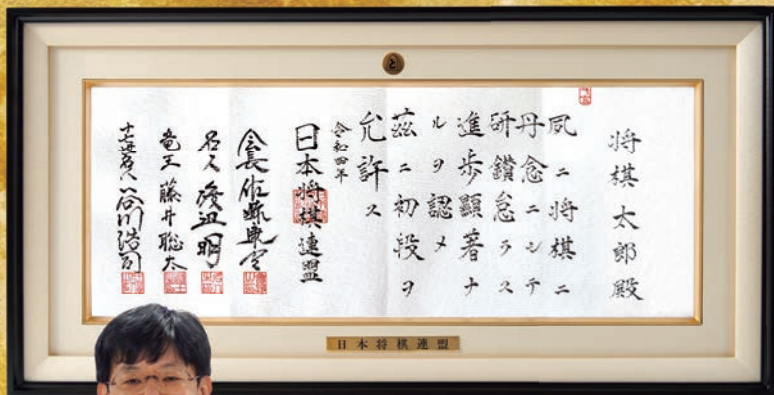 将棋太郎殿
夙ニ将棋ニ
丹念ニシテ
研鑽怠ラス
進歩顕著ナ
ルヲ認メ
茲ニ初段ヲ
允許ス
令和四年
日本将棋連盟
会長 佐藤康光
名人 渡辺明
竜王 藤井聡太
十七世名人 谷川浩司
と
日本将棋連盟